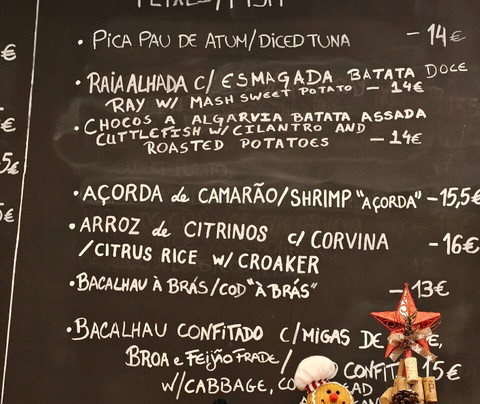 PEIXES/FISH
• PICA PAU DE ATUM/DICED TUNA - 14€
• RAIA ALHADA C/ ESMAGADA BATATA DOCE
RAY W/ MASH SWEET POTATO - 14€
• CHOCOS A ALGARVIA BATATA ASSADA
CUTTLEFISH W/ CILANTRO AND
ROASTED POTATOES - 14€
• AÇORDA de CAMARÃO/SHRIMP "AÇORDA" - 15,5€
• ARROZ de CITRINOS C/ CORVINA - 16€
/CITRUS RICE W/ CROAKER
• BACALHAU À BRÁS/COD "À BRÁS" - 13€
• BACALHAU CONFITADO C/MIGAS DE
BROA e FEIJÃO FRADE/ CONFIT 15€
W/CABBAGE,